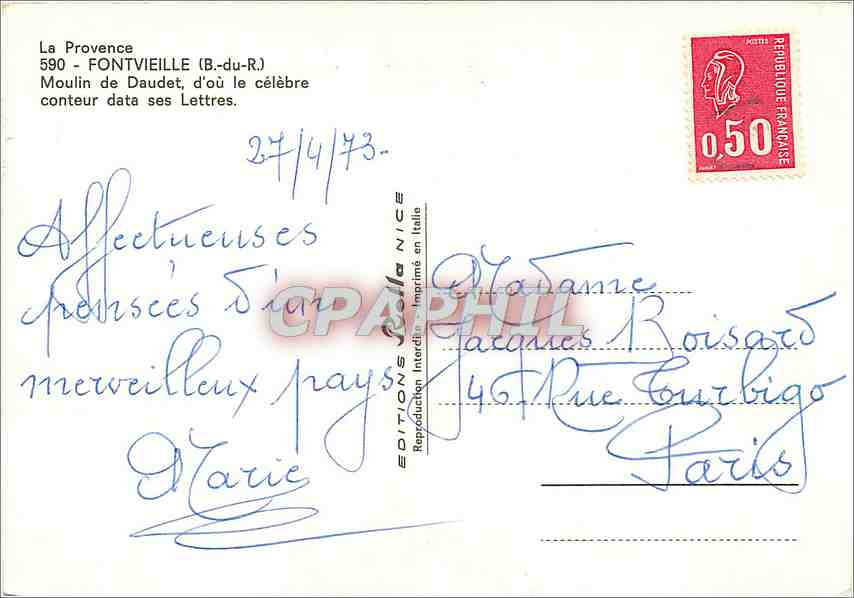 La Provence
590 - FONTVIEILLE (B.-du-R.)
Moulin de Daudet, d'où le célèbre
conteur data ses Lettres.
27/4/73-
Affectueuses
pensées d'un
merveilleux pays
Marie
EDITIONS Rella NICE
Reproduction Interdite Imprimé en Italie
CPAPHIL
POSTES
REPUBLIQUE FRANÇAISE
0,50
Madame
Jacques Roisard
46 Rue Turbigo
Paris